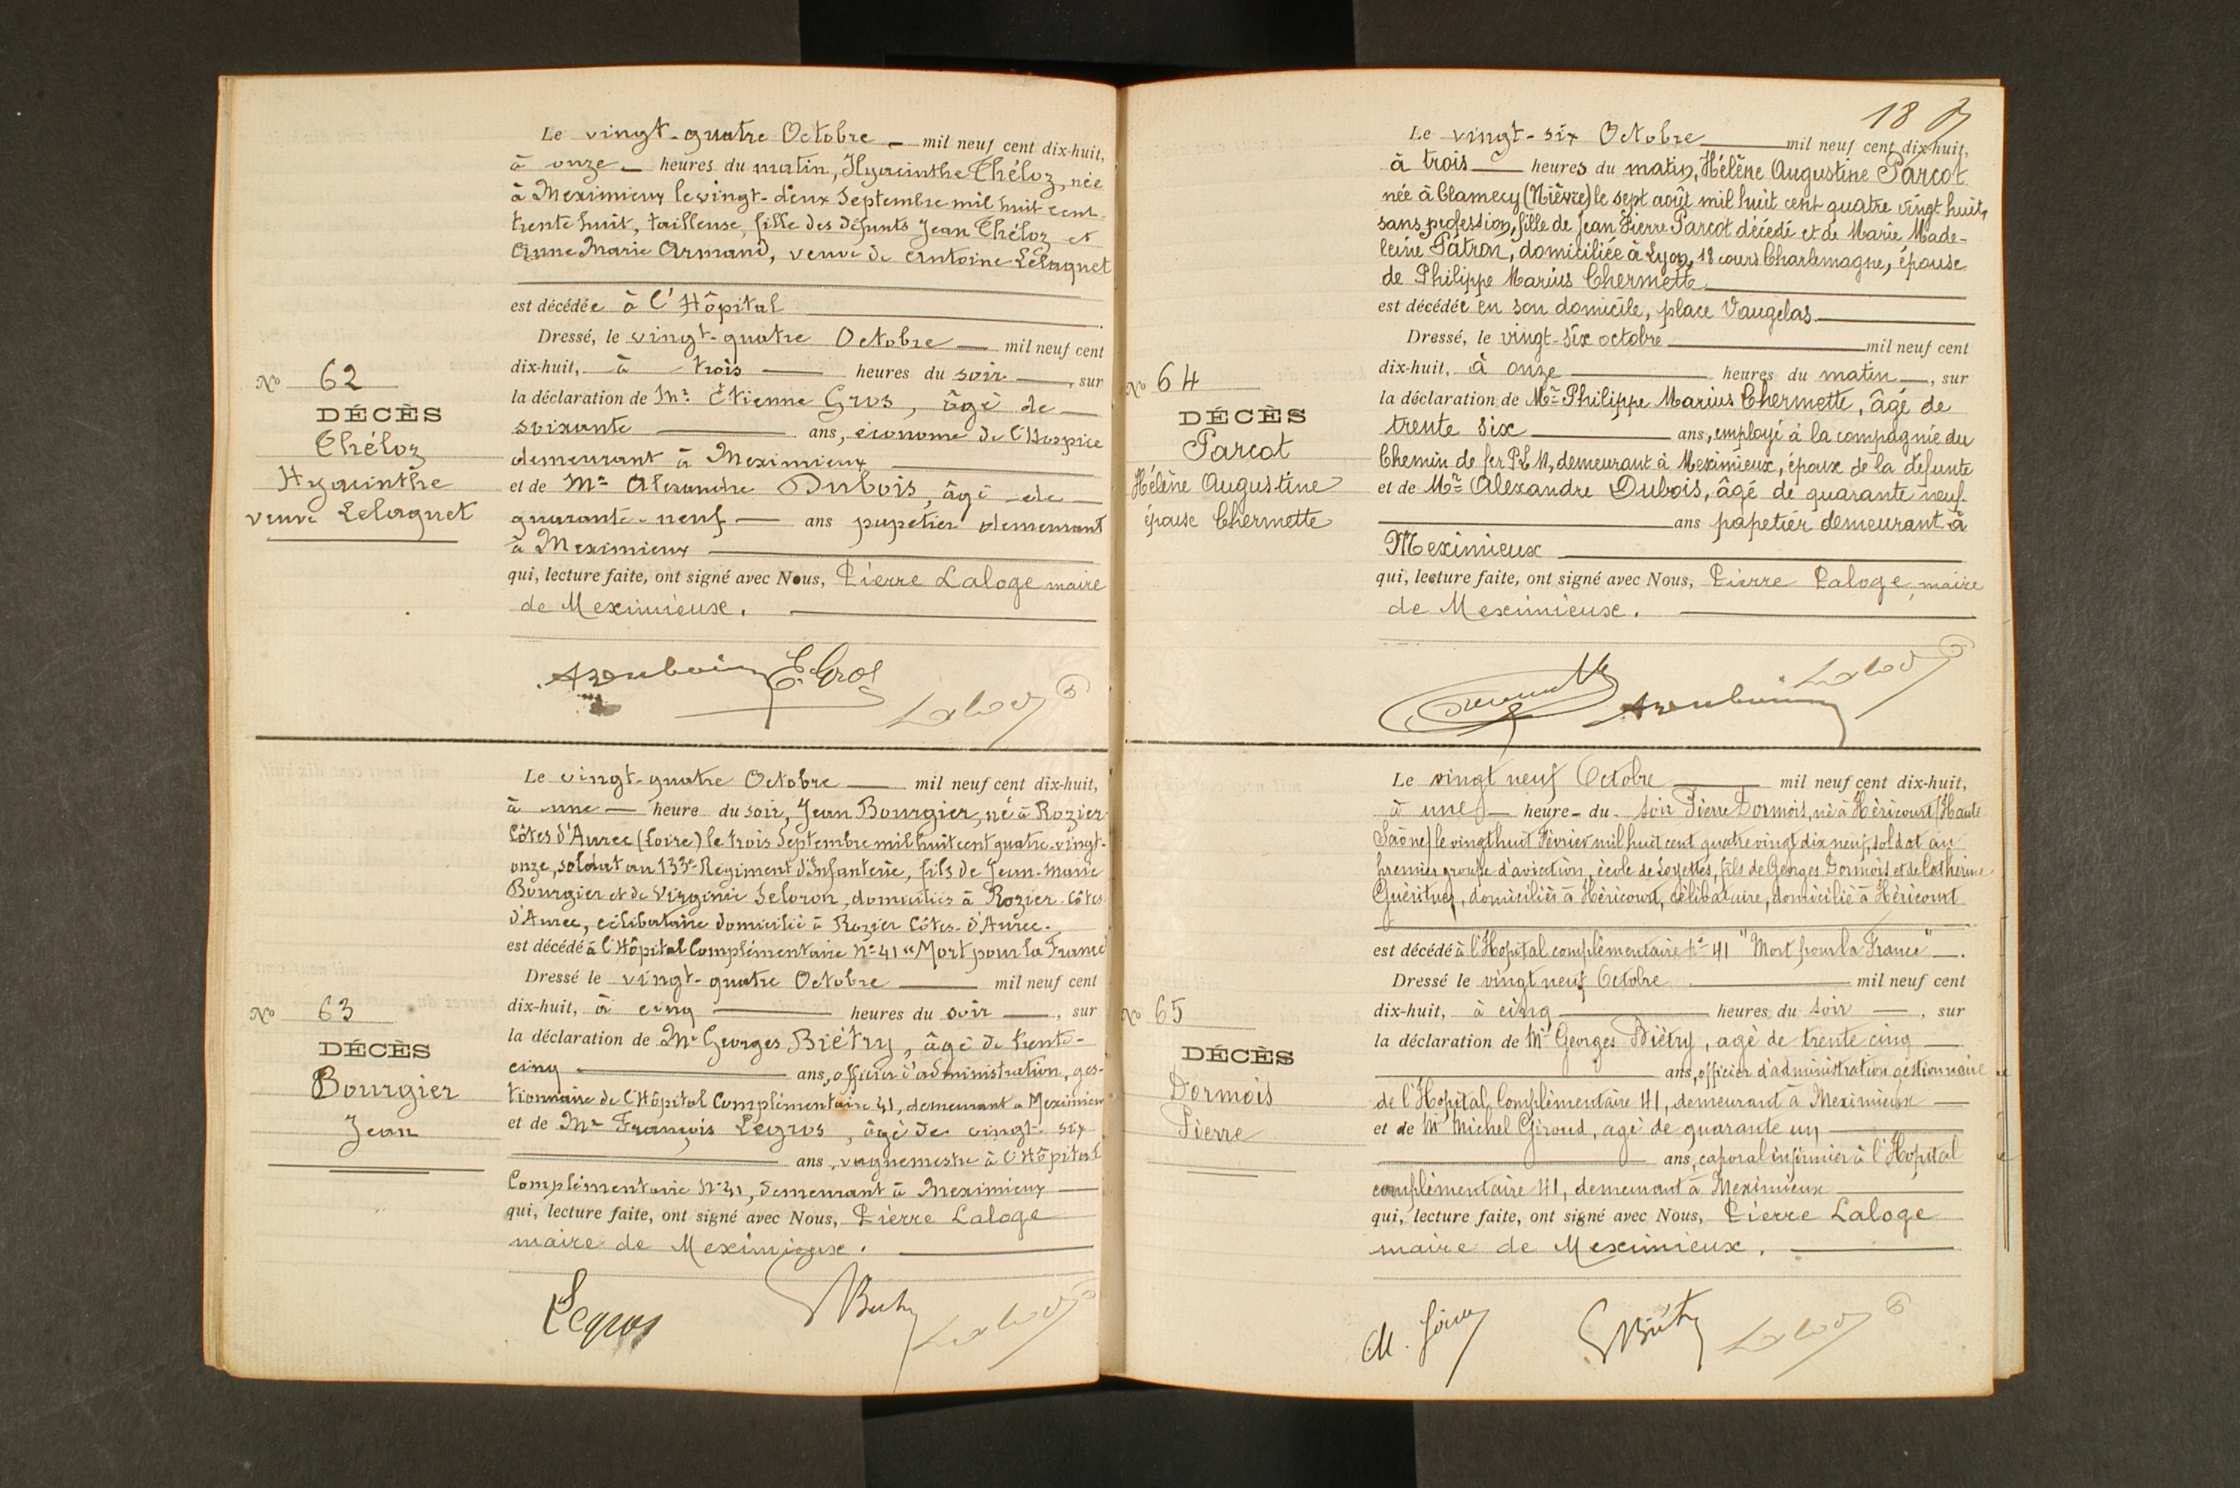 Le vingt-quatre Octobre — mil neuf cent dix-huit,
à onze — heures du matin, Hyacinthe Théloz, née
à Meximieux le vingt-deux Septembre mil huit cent
trente huit, tailleuse, fille des défunts Jean Théloz et
Anne Marie Armand, veuve de Antoine Lelagnet
est décédée à l'Hôpital
Dressé, le vingt-quatre Octobre — mil neuf cent
dix-huit, à trois — heures du soir —, sur
la déclaration de Mr. Etienne Gros, âgé de —
soixante — ans, économe de l'Hospice
demeurant à Meximieux —
et de Mr Alexandre Dubois, âgé de —
quarante-neuf — ans papetier demeurant
à Meximieux —
qui, lecture faite, ont signé avec Nous, Pierre Laloge maire
de Meximieux. —
No 62
DÉCÈS
Théloz
Hyacinthe
veuve Lelagnet
E. Gros
Le vingt-quatre Octobre — mil neuf cent dix-huit,
à une — heure du soir, Jean Bourgier, né à Rozier-
Côtes d'Aurec (Loire) le trois Septembre mil huit cent quatre-vingt-
onze, soldat au 133e Régiment d'Infanterie, fils de Jean-Marie
Bourgier et de Virginie Seloron, domiciliés à Rozier-Côtes
d'Aurec, célibataire domicilié à Rozier Côtes-d'Aurec.
est décédé à l'Hôpital Complémentaire No 41 "Mort pour la France"
Dressé le vingt-quatre Octobre — mil neuf cent
dix-huit, à cinq — heures du soir —, sur
la déclaration de Mr Georges Biétry, âgé de trente-
cinq — ans, officier d'administration, ges-
tionnaire de l'Hôpital Complémentaire 41, demeurant à Meximieux
et de Mr François Legros, âgé de vingt-six
— ans, vaguemestre à l'Hôpital
Complémentaire No 41, demeurant à Meximieux —
qui, lecture faite, ont signé avec Nous, Pierre Laloge
maire de Meximieux. —
No 63
DÉCÈS
Bourgier
Jean
Legros
18
Le vingt-six Octobre — mil neuf cent dix-huit,
à trois — heures du matin, Hélène Augustine Parcot
née à Clamecy (Nièvre) le sept août mil huit cent quatre vingt huit,
sans profession, fille de Jean Pierre Parcot décédé et de Marie Made-
leine Patron, domiciliée à Lyon, 18 cours Charlemagne, épouse
de Philippe Marius Chermette —
est décédée en son domicile, place Vaugelas —
Dressé, le vingt-six octobre — mil neuf cent
dix-huit, à onze — heures du matin —, sur
la déclaration de Mr Philippe Marius Chermette, âgé de
trente six — ans, employé à la compagnie du
Chemin de fer P.L.M, demeurant à Meximieux, époux de la défunte
et de Mr Alexandre Dubois, âgé de quarante neuf
— ans papetier demeurant à
Meximieux —
qui, lecture faite, ont signé avec Nous, Pierre Laloge, maire
de Meximieux. —
No 64
DÉCÈS
Parcot
Hélène Augustine
épouse Chermette
Le vingt neuf Octobre — mil neuf cent dix-huit,
à une — heure du soir Pierre Dormois, né à Héricourt (Haute
Saône) le vingt huit Février mil huit cent quatre vingt dix neuf, soldat au
premier groupe d'aviation, école de Loyettes, fils de Georges Dormois et de Catherine
domiciliés à Héricourt, célibataire, domicilié à Héricourt
est décédé à l'Hopital complémentaire No 41 "Mort pour la France" —.
Dressé le vingt neuf Octobre — mil neuf cent
dix-huit, à cinq — heures du soir —, sur
la déclaration de Mr Georges Biétry, agé de trente cinq —
— ans, officier d'administration gestionnaire
de l'Hopital Complémentaire 41, demeurant à Meximieux —
et de Mr Michel Giroud, agé de quarante un —
— ans, caporal infirmier à l'Hopital
complémentaire 41, demeurant à Meximieux —
qui, lecture faite, ont signé avec Nous, Pierre Laloge
maire de Meximieux. —
No 65
DÉCÈS
Dormois
Pierre